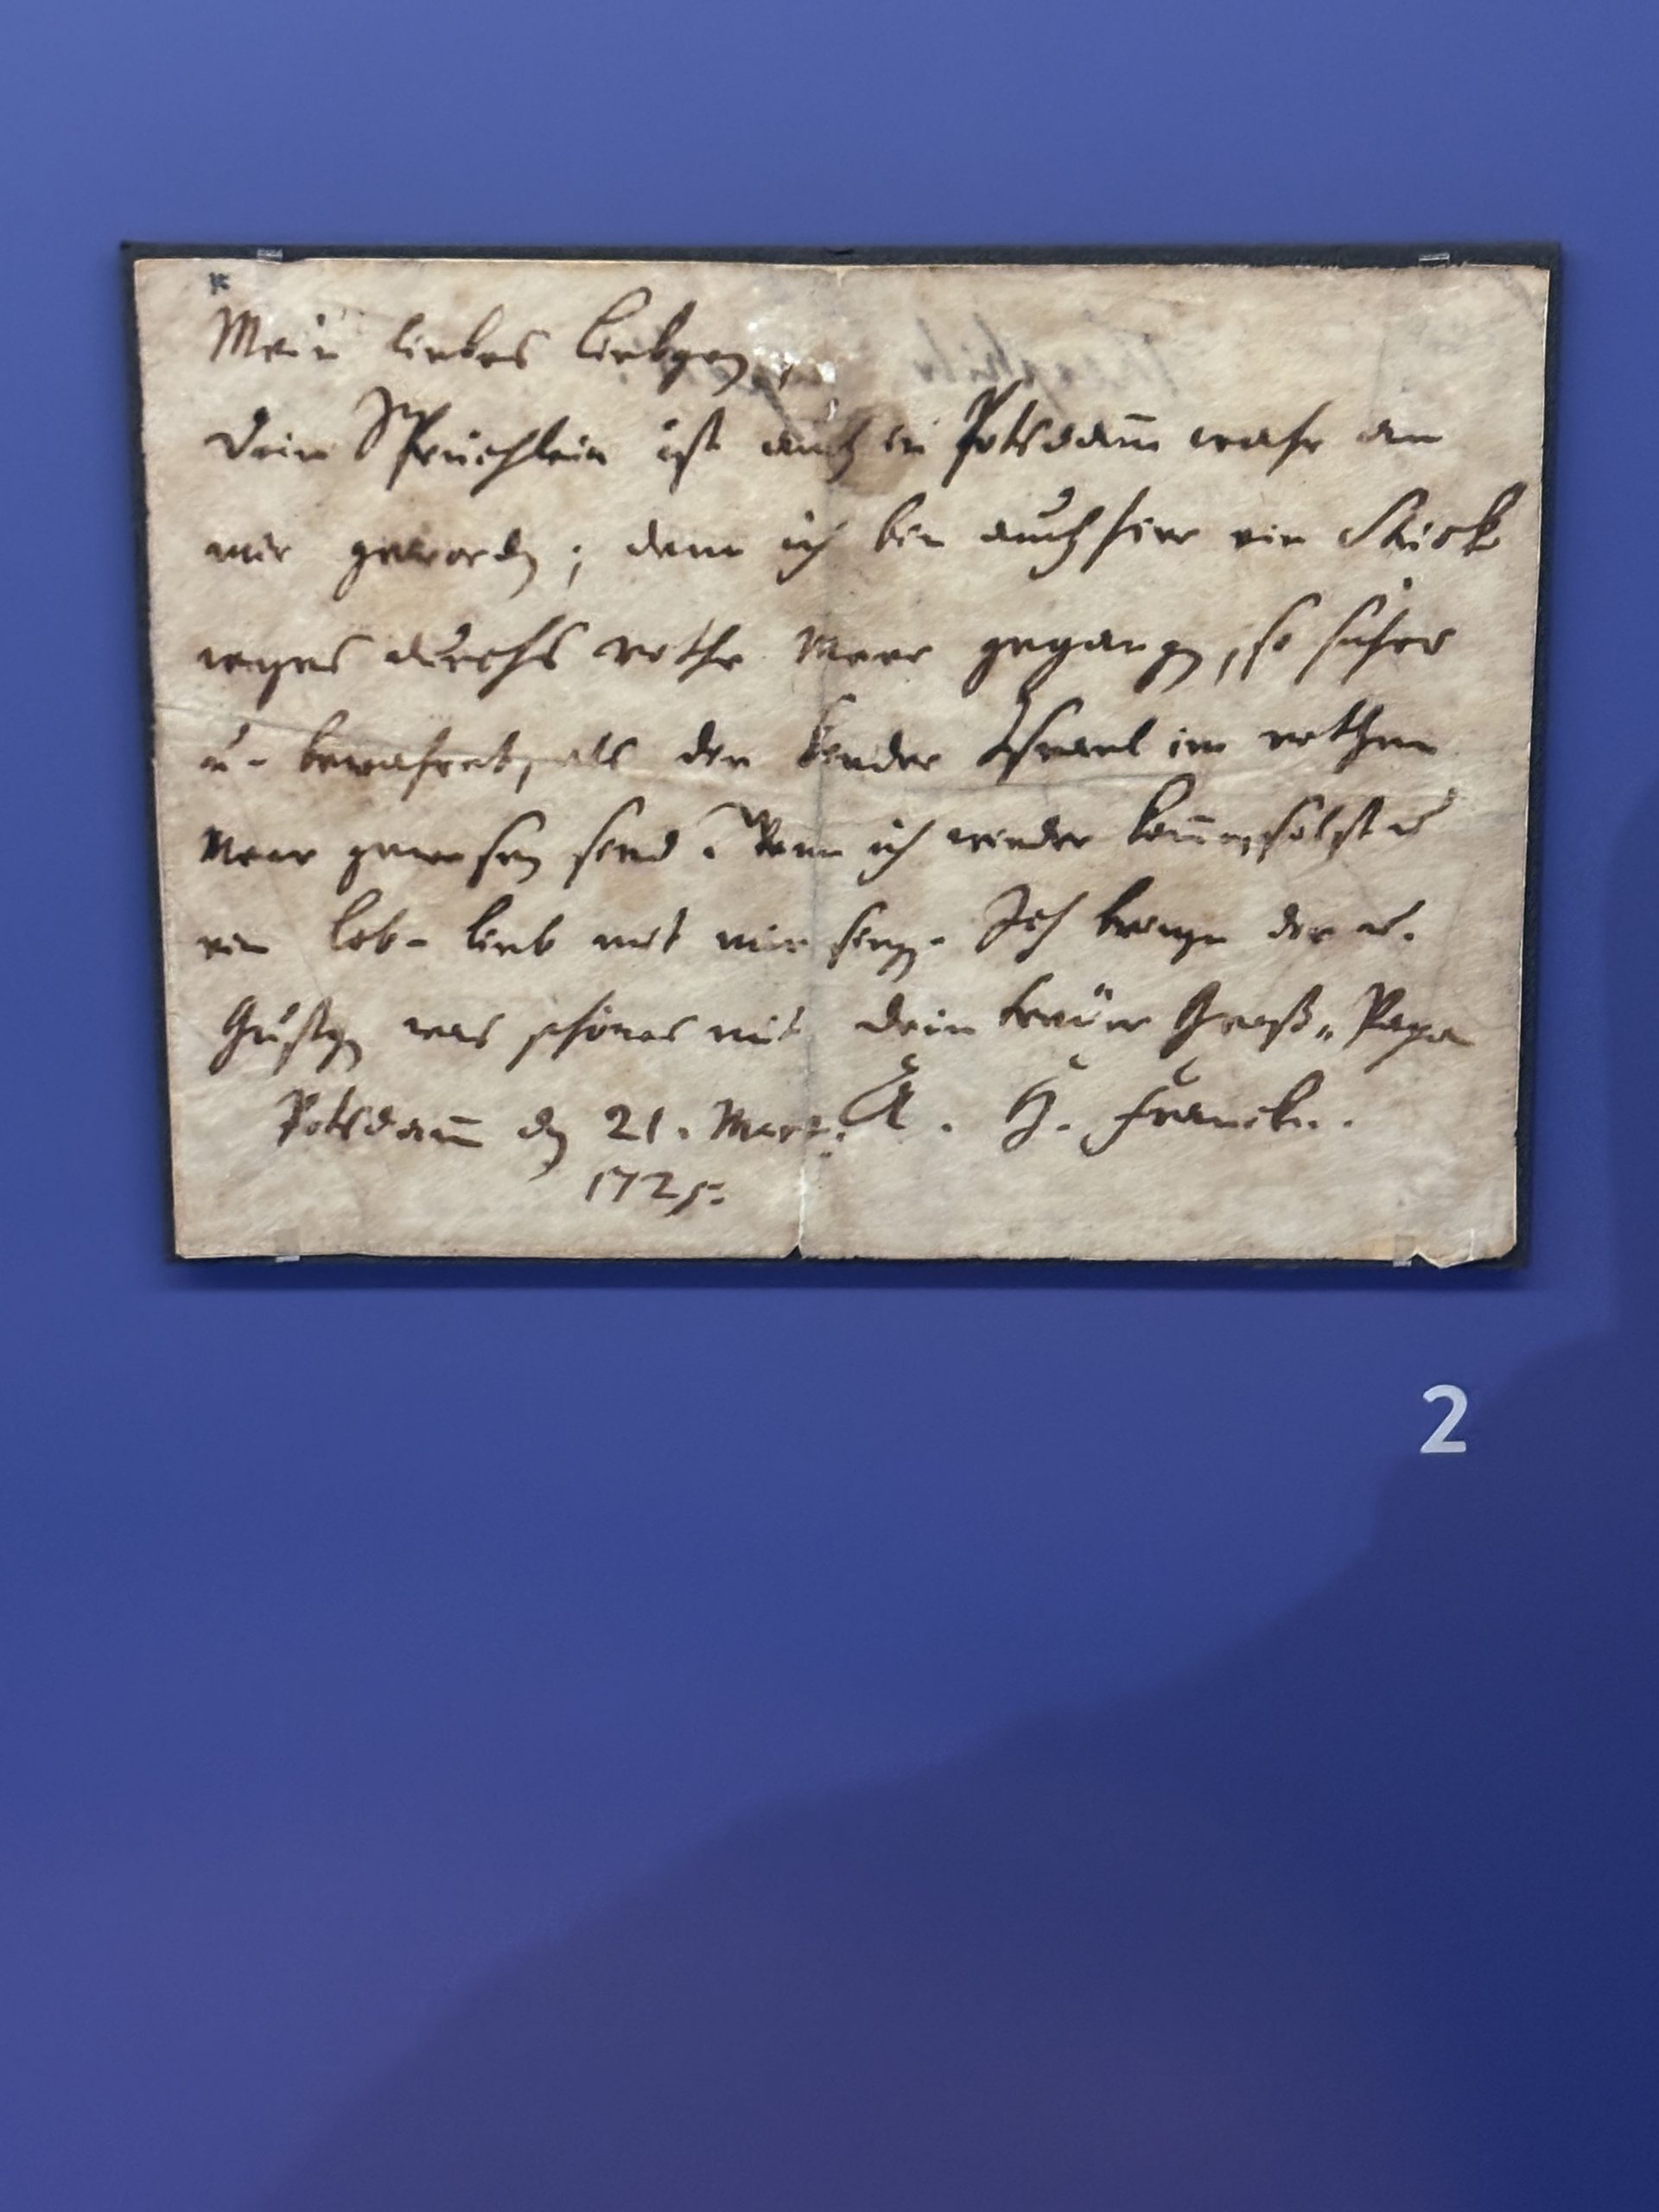 Mein liebes Liebgen,
Dein Sprüchlein ist auch in Potsdam̄ wahr an
mir geworden; denn ich bin auch hier ein Stück
weges durchs rothe Meer gegangen, so sicher
u. bewahret, als die Kinder Israel im rothen
Meer gewesen sind. Wenn ich wieder kom̄e, solst du
ein Lob-Lied mit mir singen. Ich bringe dir u.
Gustgen was schönes mit dein treüer Groß-Papa
Potsdam̄ den 21. Mart. A. H. Francke.
1725.
2